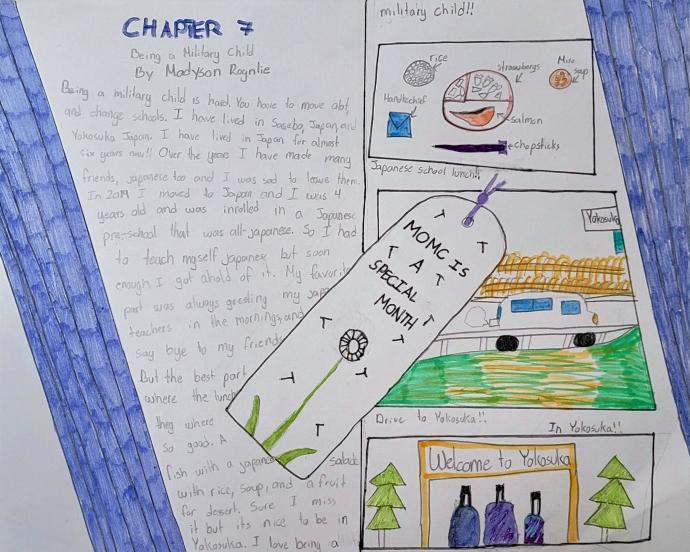 CHAPTER 7
Being a Military Child
By Madyson Rogntie
Being a military child is hard. You have to move abt,
and change schools. I have lived in Sasebo, Japan, and
Yokosuka Japan. I have lived in Japan for almost
six years now!! Over the years I have made many
friends, japanese too and I was sad to leave them.
In 2019 I moved to Japan and I was 4
years old and was inrolled in a Japanese
pre-school that was all-japanese. So I had
to teach myself japanese, but soon
enough I got ahold of it. My favorite
part was always greeting my
teachers in the mornings, and
say bye to my friends
But the best part
where the lunch
they where
so good. A
fish with a japanese salade
with rice, soup, and a fruit
for desert. Sure I miss
it but its nice to be in
Yokosuka. I love being a
military child!!
rice
strawbergs
Miso
soup
Handkechief
salmon
chopsticks
Japanese school lunch!!
MOMC IS
A
SPECIAL
MONTH
Yokosuka
Drive to Yokosuka!!
In Yokosuka!!
Welcome to Yokosuka